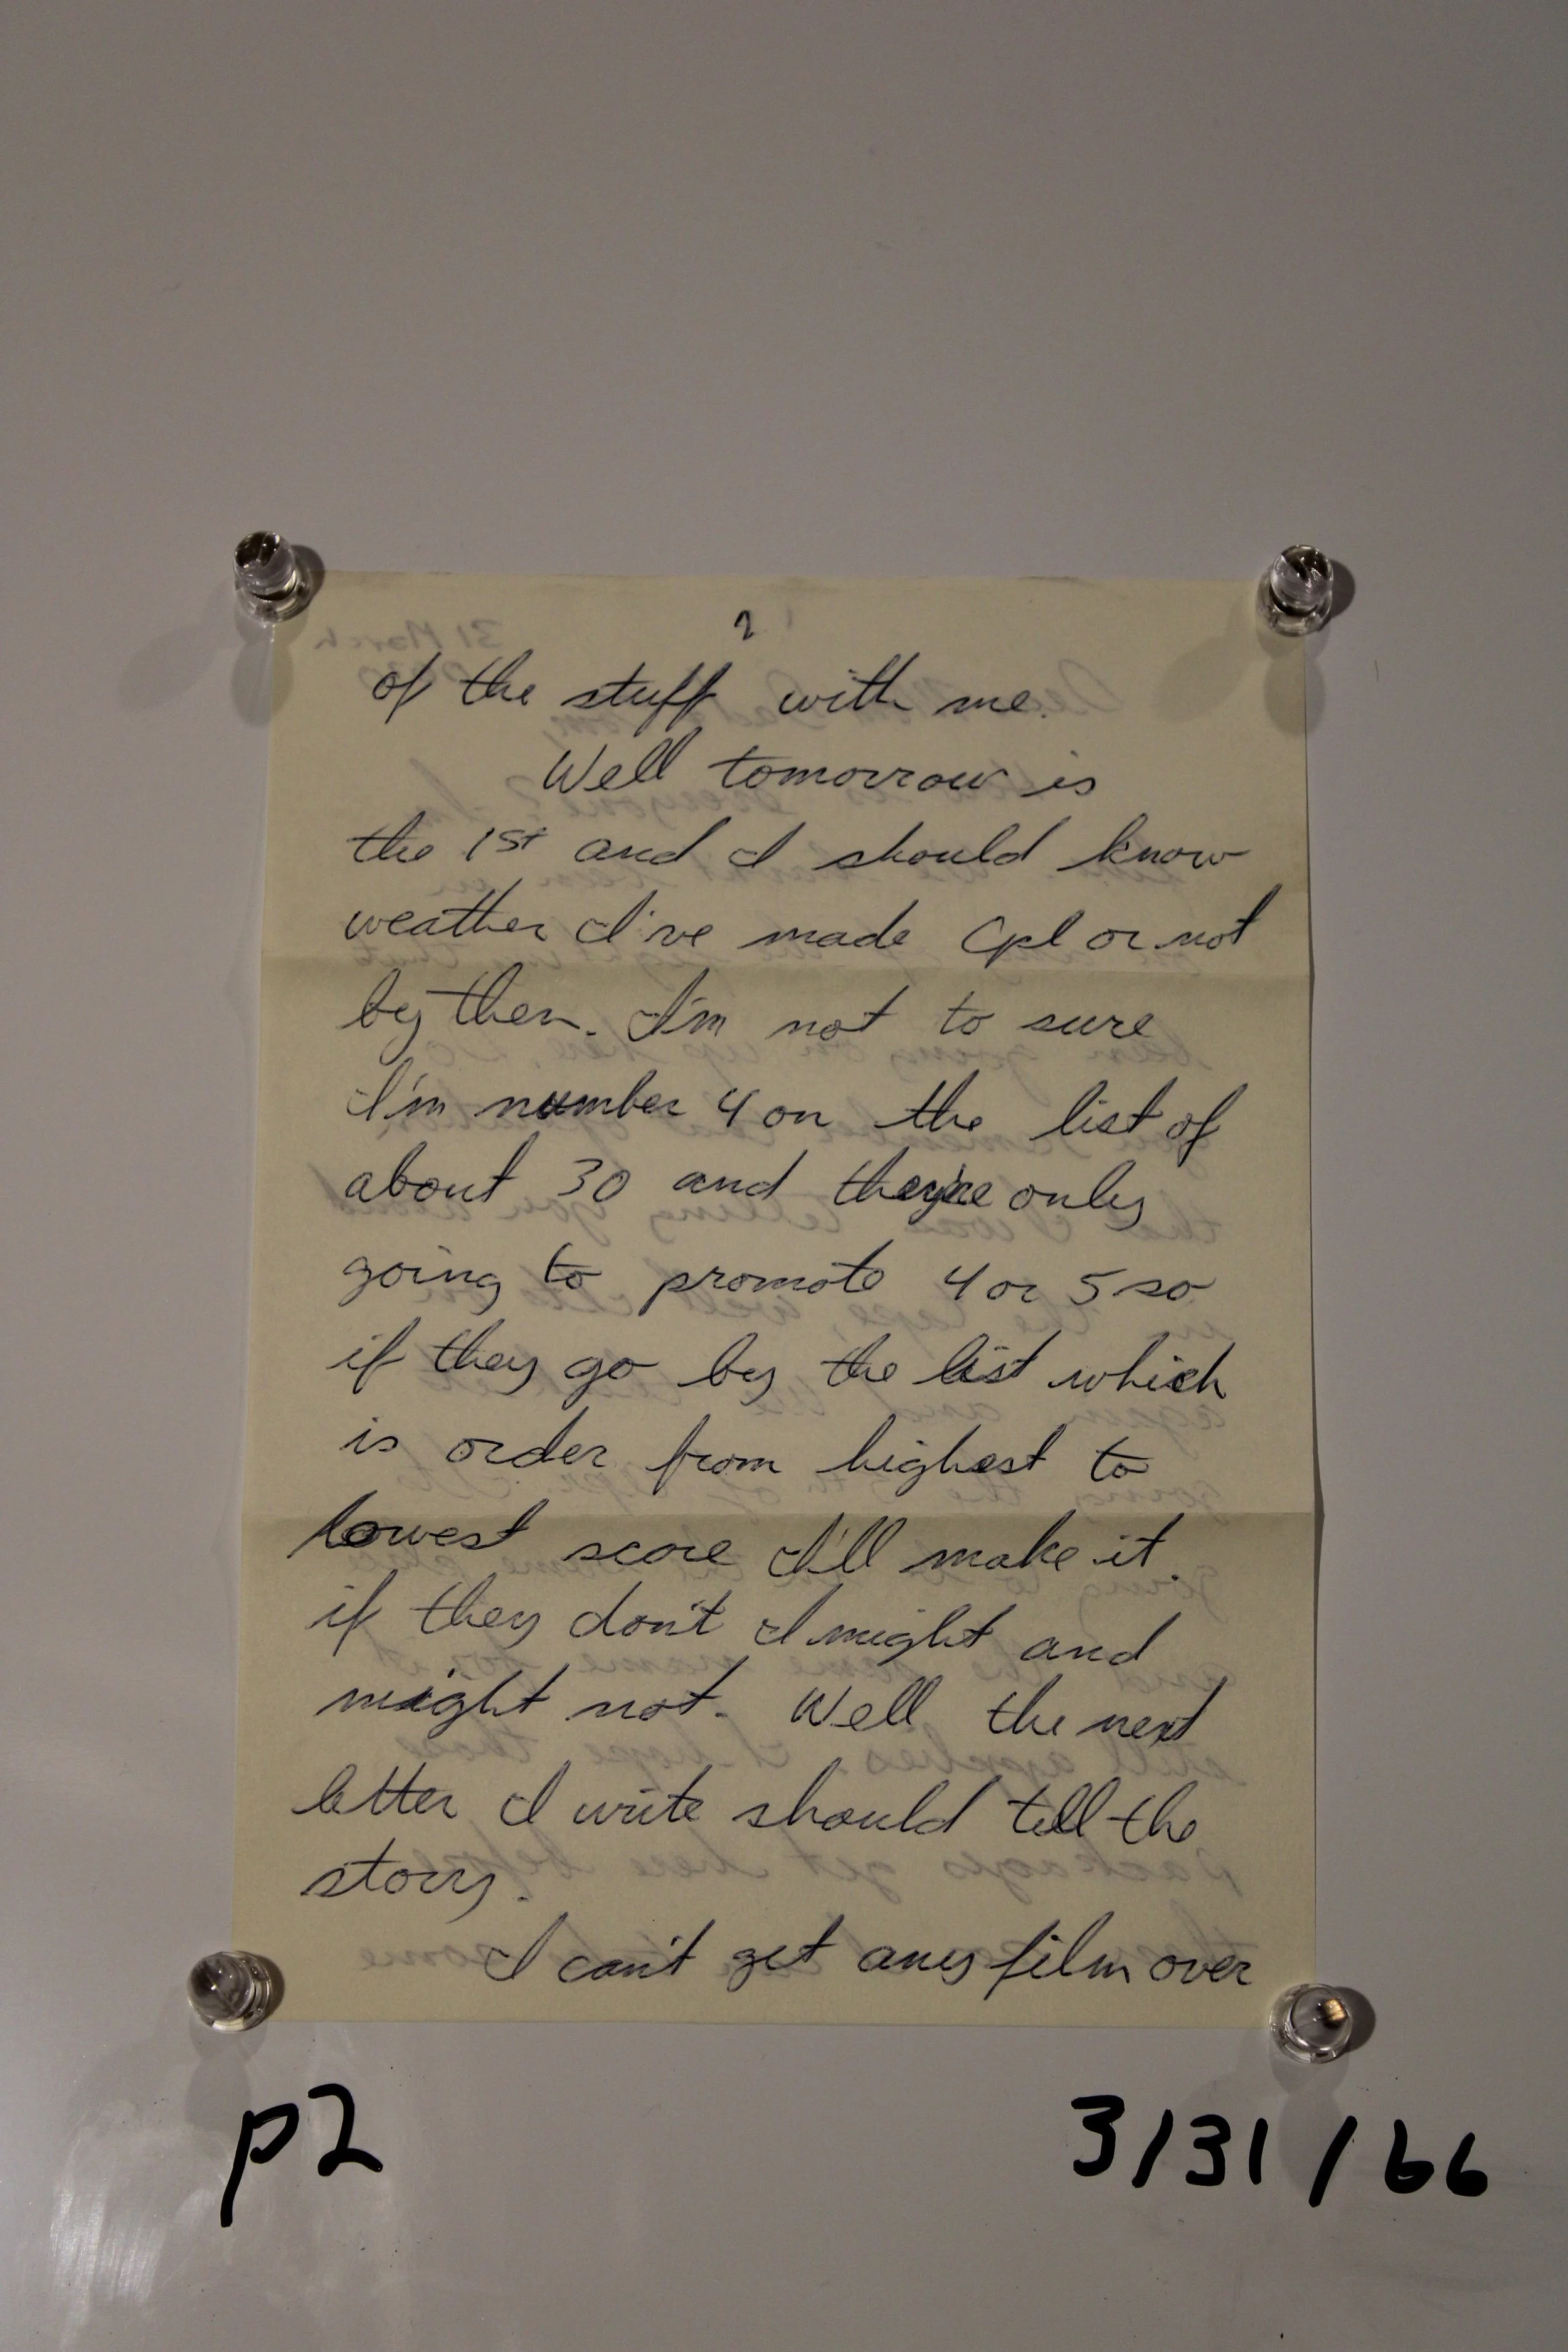 2
of the stuff with me.
Well tomorrow is
the 1st and I should know
weather I've made Cpl or not
by then. I'm not to sure
I'm number 4 on the list of
about 30 and they're only
going to promote 4 or 5 so
if they go by the list which
is order from highest to
lowest score I'll make it.
if they don't I might and
might not. Well the next
letter I write should tell the
story.
I can't get any film over
p2
3/31/66